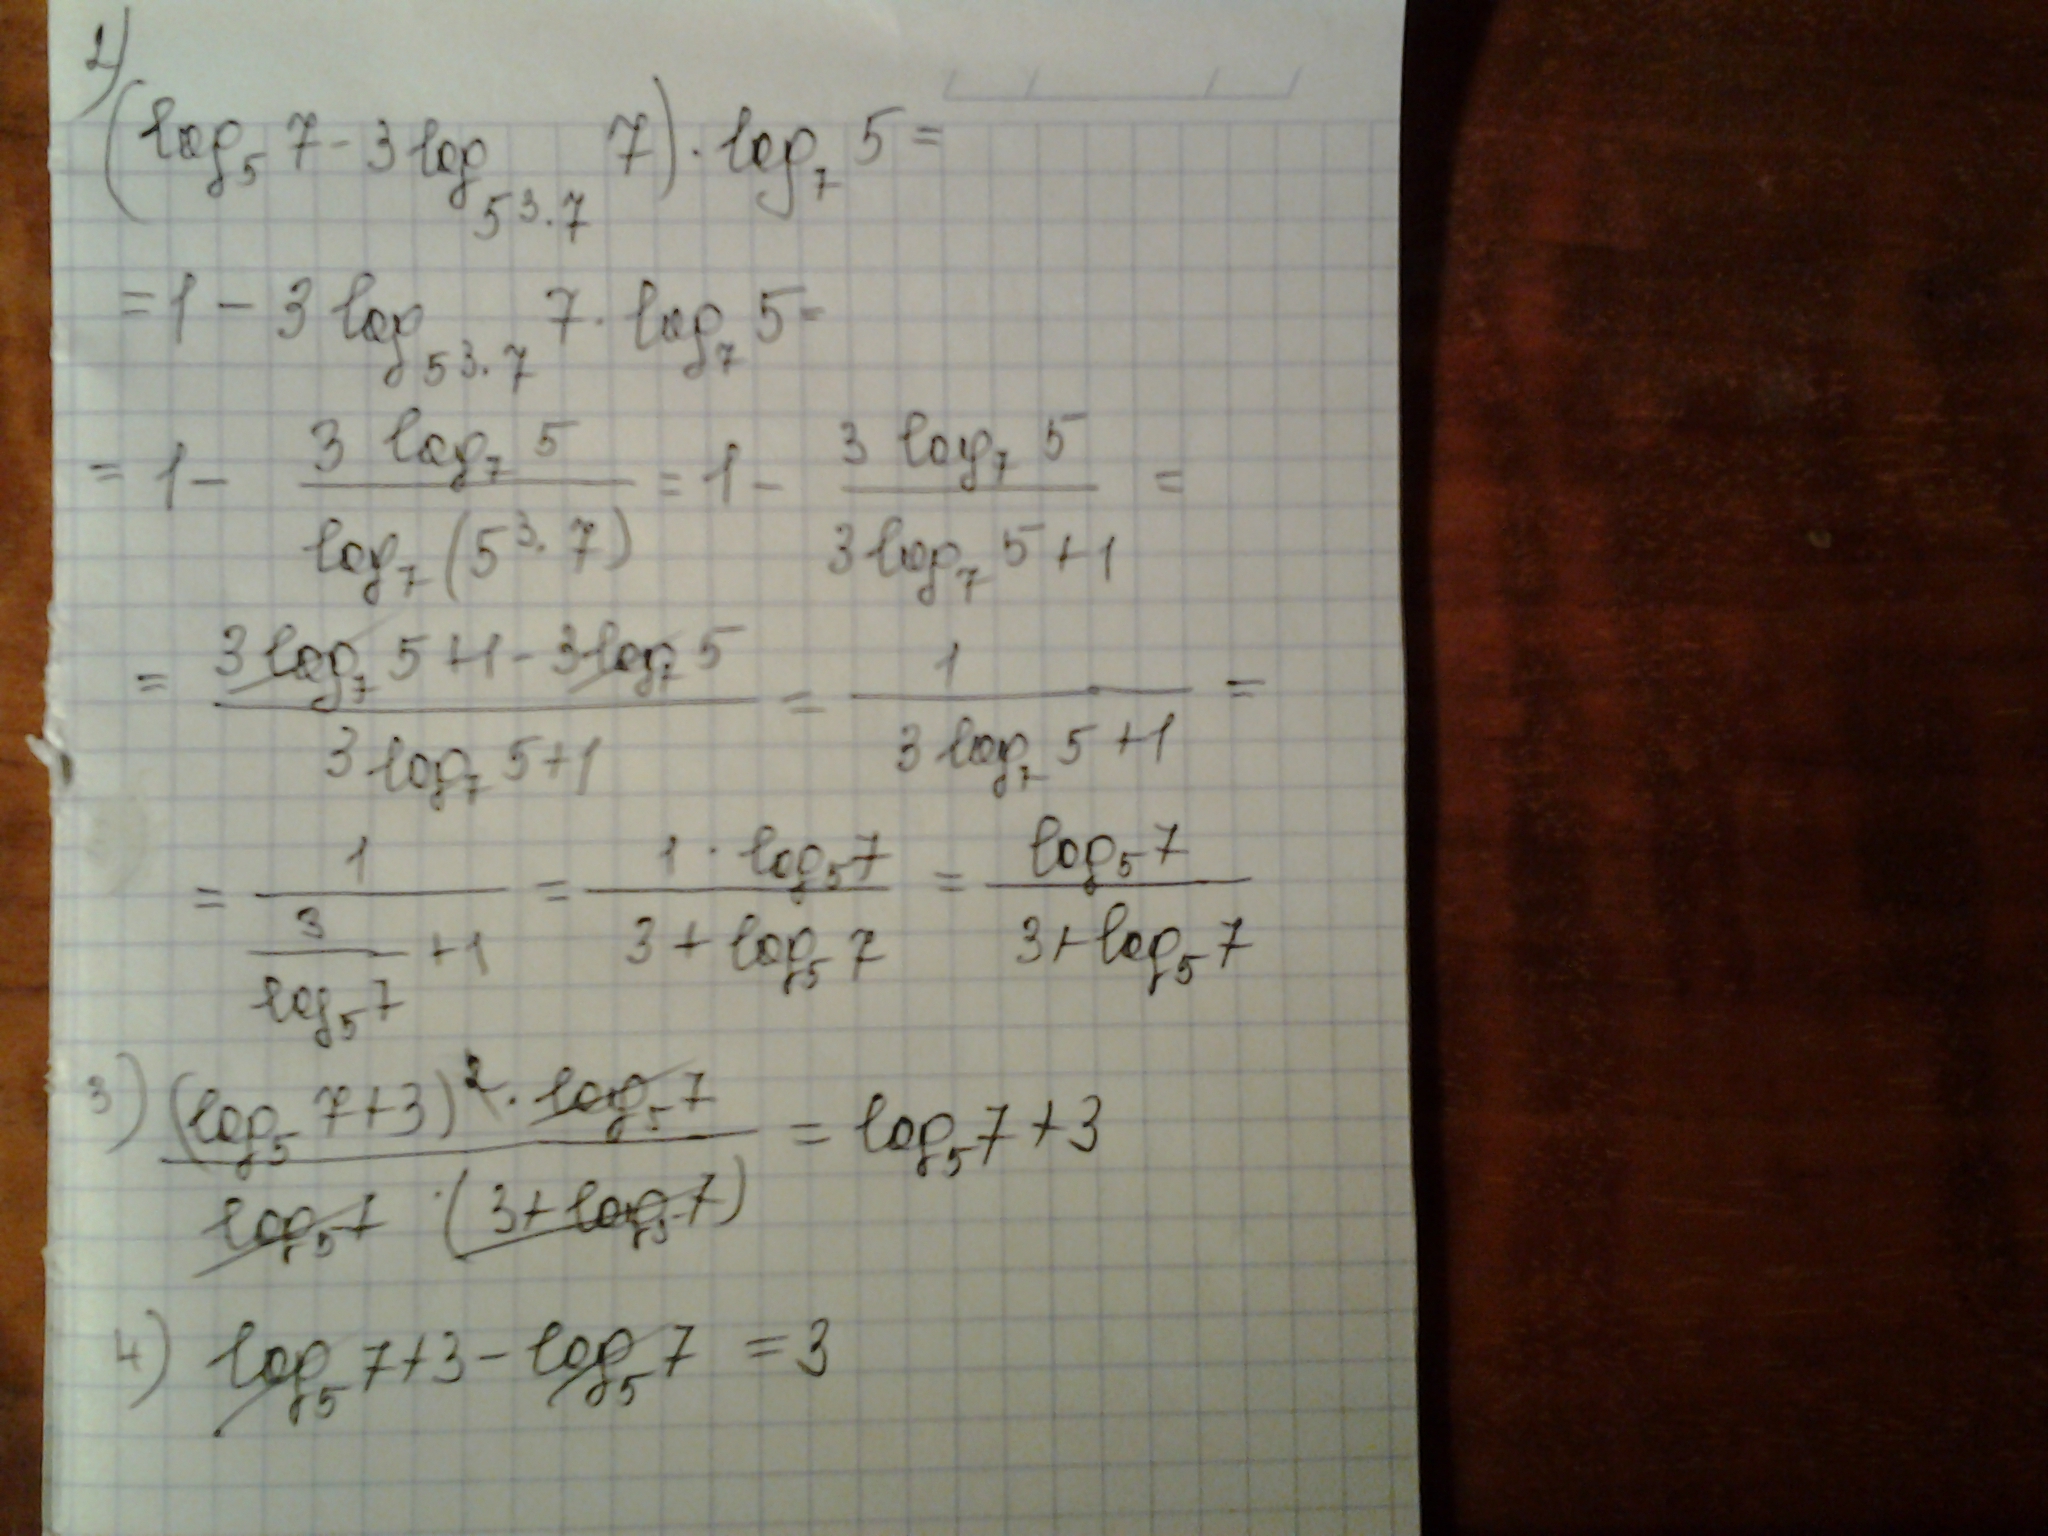 2)
(log₅ 7 - 3 log₅³·₇ 7) · log₇ 5 =
= 1 - 3 log₅³·₇ 7 · log₇ 5 =
= 1 - (3 log₇ 5)/(log₇ (5³·7)) = 1 - (3 log₇ 5)/(3 log₇ 5 + 1) =
= (3 log₇ 5 + 1 - 3 log₇ 5)/(3 log₇ 5 + 1) = 1/(3 log₇ 5 + 1) =
= 1/(3/(log₅ 7) + 1) = (1 · log₅ 7)/(3 + log₅ 7) = (log₅ 7)/(3 + log₅ 7)
3) ((log₅ 7 + 3)² · log₅ 7)/(log₅ 7 · (3 + log₅ 7)) = log₅ 7 + 3
4) log₅ 7 + 3 - log₅ 7 = 3